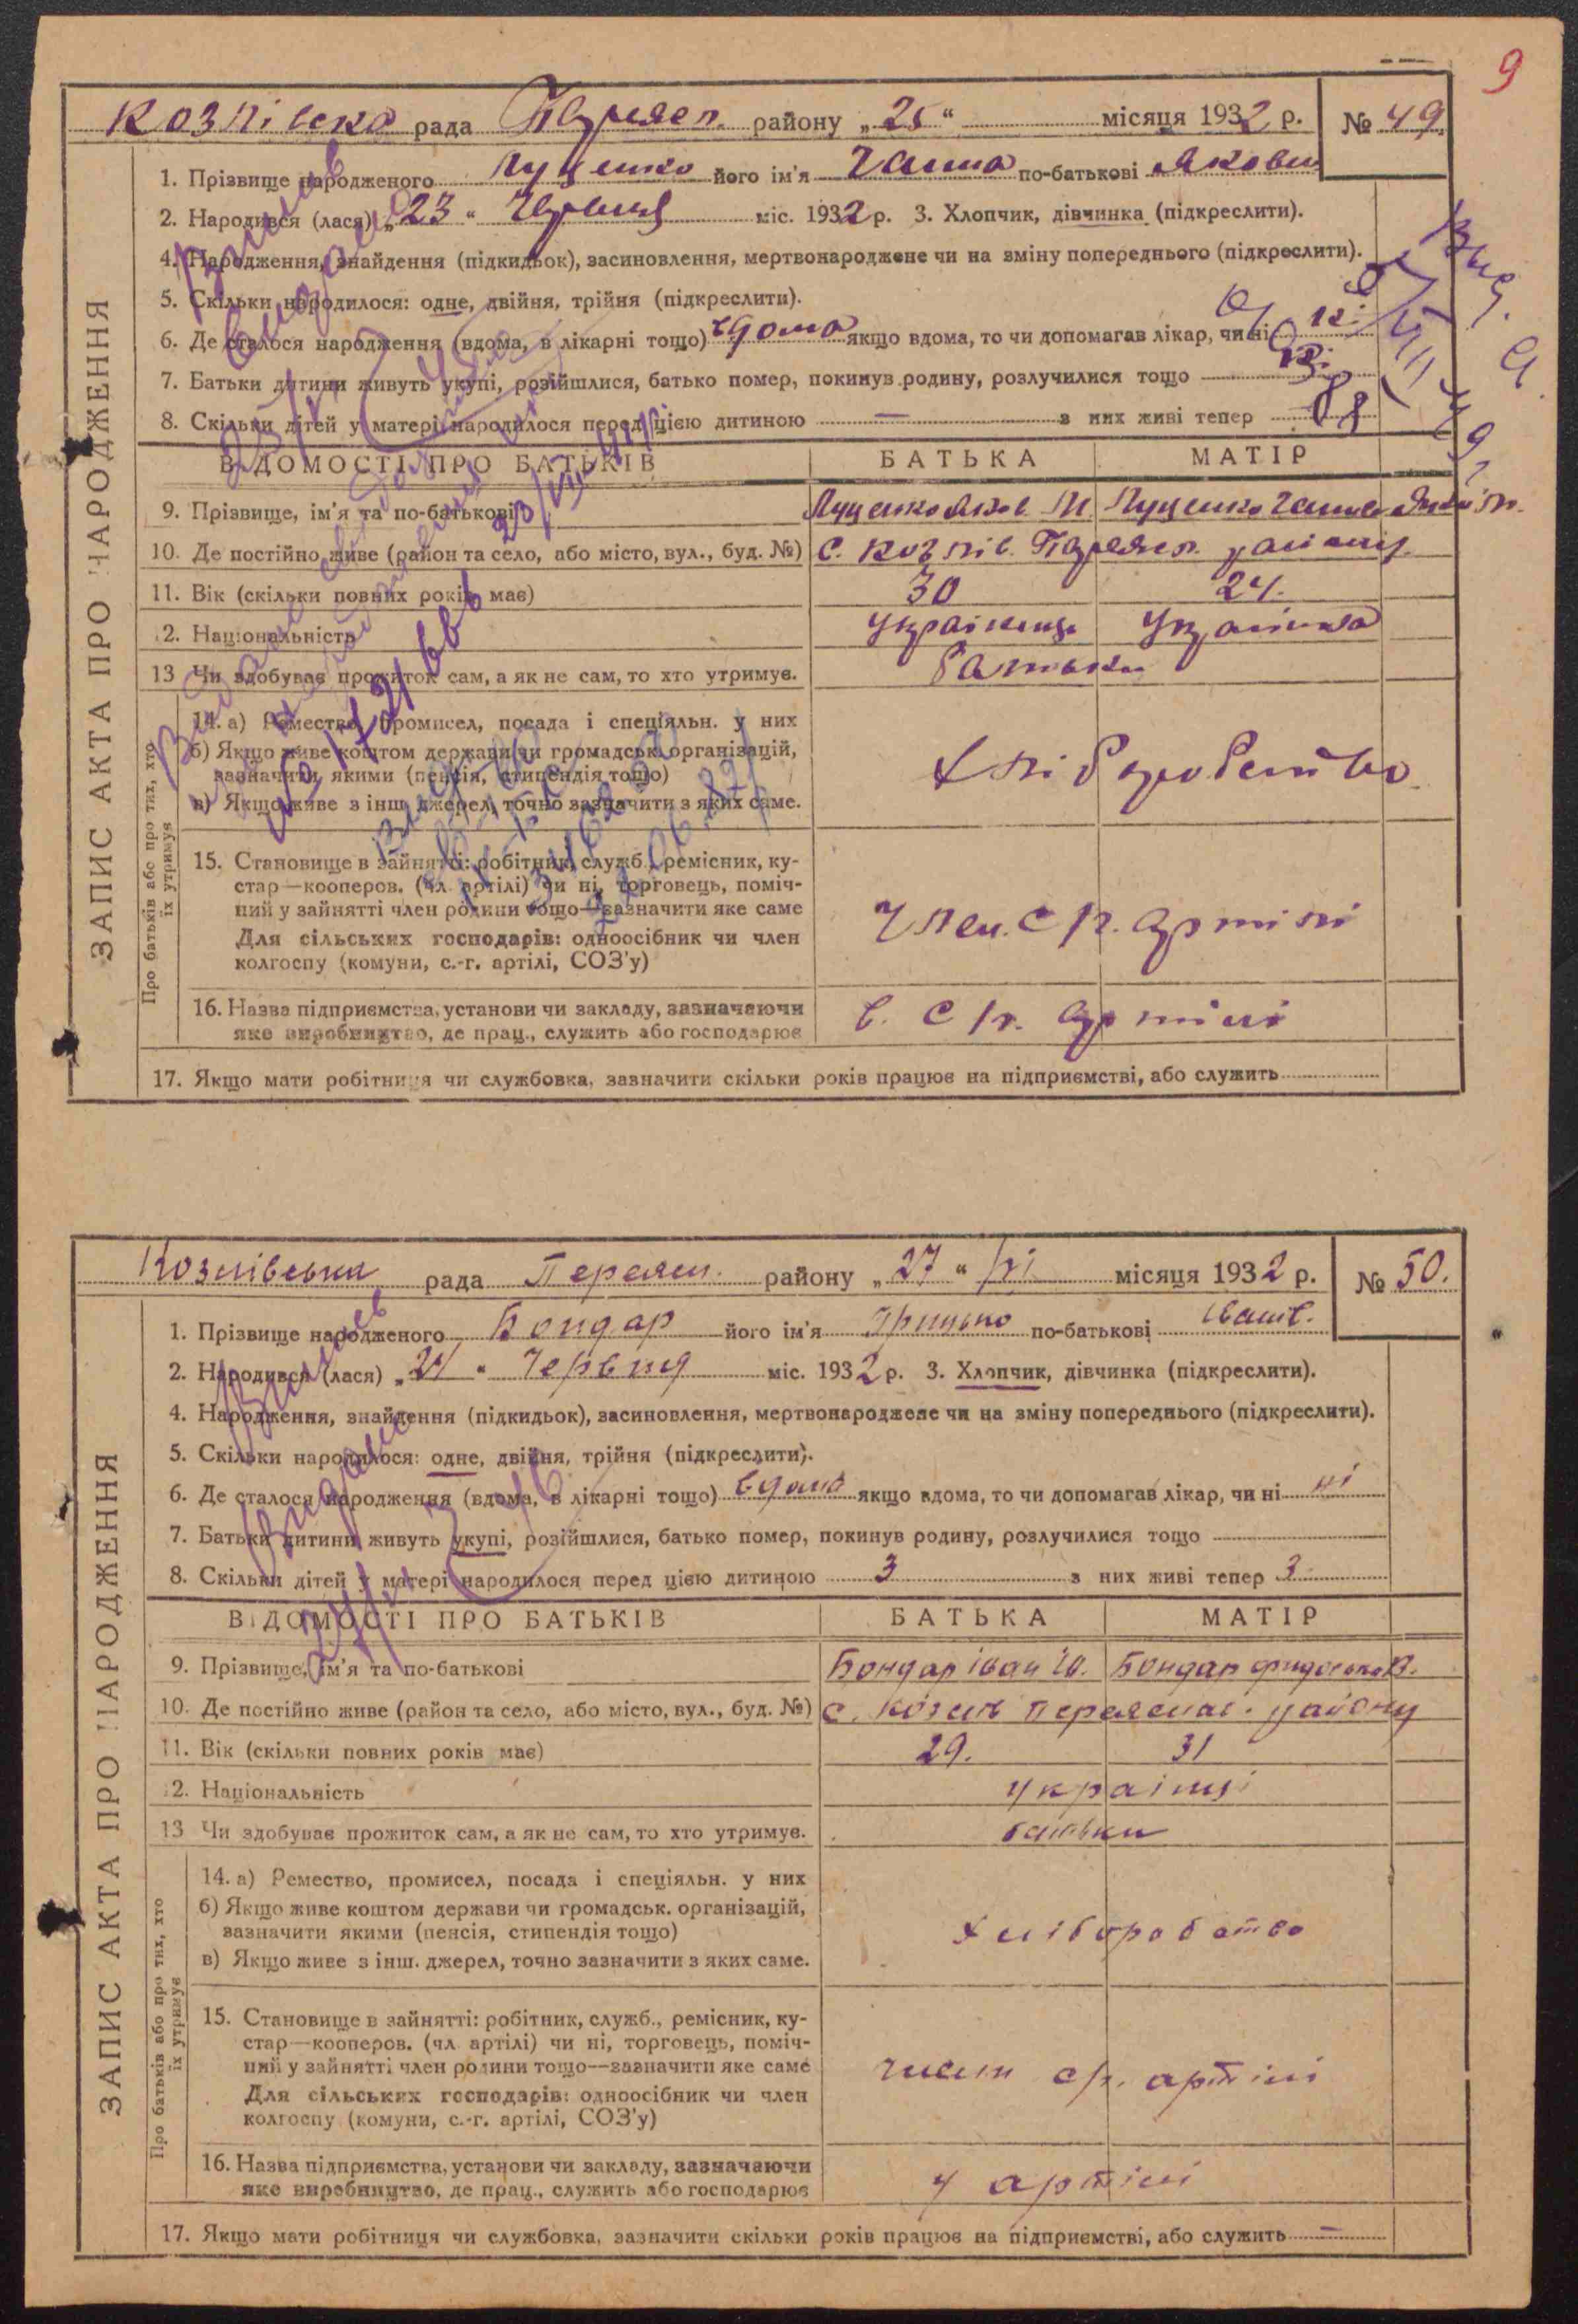 9
Козлівска рада Переясл. району „25“ місяця 1932 р. № 49
1. Прізвище народженого Луценко його ім'я Ганна по-батькові Яковл
2. Народився (лася) „23“ Червня міс. 1932 р. 3. Хлопчик, дівчинка (підкреслити).
4. Народження, знайдення (підкидьок), засиновлення, мертвонароджене чи на зміну попереднього (підкреслити).
5. Скільки народилося: одне, двійня, трійня (підкреслити).
6. Де сталося народження (вдома, в лікарні тощо) вдома якщо вдома, то чи допомагав лікар, чи ні ні
7. Батьки дитини живуть укупі, розійшлися, батько помер, покинув родину, розлучилися тощо
8. Скільки дітей у матері народилося перед цією дитиною — з них живі тепер
ВІДОМОСТІ ПРО БАТЬКІВ БАТЬКА МАТІР
9. Прізвище, ім'я та по-батькові Луценко Яков М. Луценко Ганна
10. Де постійно живе (район та село, або місто, вул., буд. №) с. Козлів. Переясл. району
11. Вік (скільки повних років має) 30 24.
12. Національність Українець Українка
13 Чи здобуває прожиток сам, а як не сам, то хто утримує. батьки
14. а) Ремество, промисел, посада і спеціяльн. у них
б) Якщо живе коштом держави чи громадськ. організацій,
зазначити якими (пенсія, стипендія тощо)
в) Якщо живе з інш. джерел, точно зазначити з яких саме.
Хліборобство
15. Становище в зайнятті: робітник, служб., ремісник, ку-
стар—кооперов. (чл. артілі) чи ні, торговець, поміч-
ний у зайнятті член родини тощо—зазначити яке саме
Для сільських господарів: одноосібник чи член
колгоспу (комуни, с.-г. артілі, СОЗ'у)
Член. с/г. артілі
16. Назва підприємства, установи чи закладу, зазначаючи
яке виробництво, де прац., служить або господарює
в. с/г. артілі
17. Якщо мати робітниця чи службовка, зазначити скільки років працює на підприємстві, або служить
ЗАПИС АКТА ПРО НАРОДЖЕННЯ
Про батьків або про тих, хто
їх утримує
Витяг
видано
№ 172166
Козлівськи рада Переясл. району „27“ /VI місяця 1932 р. № 50.
1. Прізвище народженого Бондар його ім'я Грицько по-батькові Іванів.
2. Народився (лася) „24“ Червня міс. 1932 р. 3. Хлопчик, дівчинка (підкреслити).
4. Народження, знайдення (підкидьок), засиновлення, мертвонароджене чи на зміну попереднього (підкреслити).
5. Скільки народилося: одне, двійня, трійня (підкреслити).
6. Де сталося народження (вдома, в лікарні тощо) вдома якщо вдома, то чи допомагав лікар, чи ні ні
7. Батьки дитини живуть укупі, розійшлися, батько помер, покинув родину, розлучилися тощо
8. Скільки дітей у матері народилося перед цією дитиною 3 з них живі тепер 3
ВІДОМОСТІ ПРО БАТЬКІВ БАТЬКА МАТІР
9. Прізвище, ім'я та по-батькові Бондар Іван Бондар Фидоська В.
10. Де постійно живе (район та село, або місто, вул., буд. №) с. Козлів Переяслав. району
11. Вік (скільки повних років має) 29. 31
12. Національність українці
13 Чи здобуває прожиток сам, а як не сам, то хто утримує. батьки
14. а) Ремество, промисел, посада і спеціяльн. у них
б) Якщо живе коштом держави чи громадськ. організацій,
зазначити якими (пенсія, стипендія тощо)
в) Якщо живе з інш. джерел, точно зазначити з яких саме.
Хліборобство
15. Становище в зайнятті: робітник, служб., ремісник, ку-
стар—кооперов. (чл. артілі) чи ні, торговець, поміч-
ний у зайнятті член родини тощо—зазначити яке саме
Для сільських господарів: одноосібник чи член
колгоспу (комуни, с.-г. артілі, СОЗ'у)
член с/г. артілі
16. Назва підприємства, установи чи закладу, зазначаючи
яке виробництво, де прац., служить або господарює
у артілі
17. Якщо мати робітниця чи службовка, зазначити скільки років працює на підприємстві, або служить —
ЗАПИС АКТА ПРО НАРОДЖЕННЯ
Про батьків або про тих, хто
їх утримує
Витяг
видано